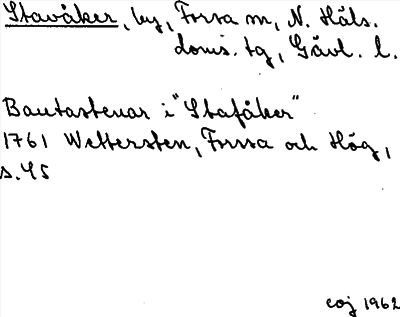 Stavåker, by, Forsa sn, N. Häls.
doms. tg, Gävl. l.
Bautastenar i "Stafåker"
1761 Wettersten, Forssa och Hög,
s. 45
coj 1962